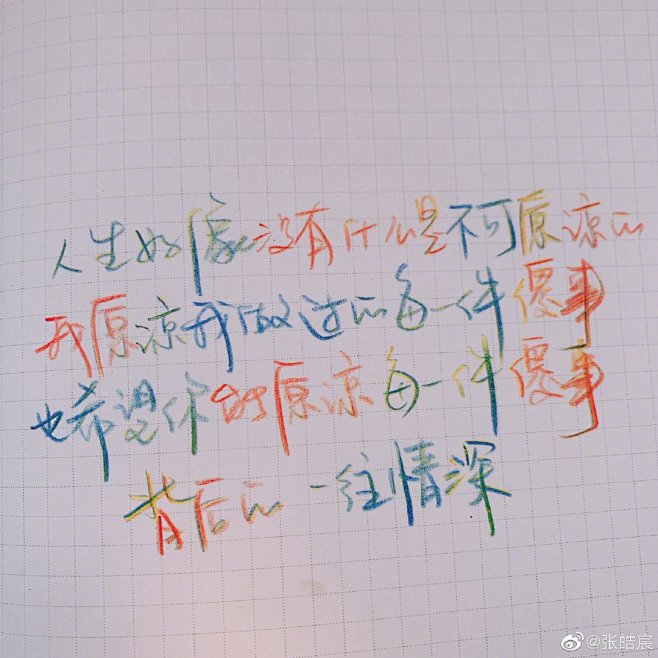 人生好像没有什么是不可原谅的
我原谅我做过的每一件傻事
也希望你能原谅每一件傻事
背后的一往情深
@张皓宸